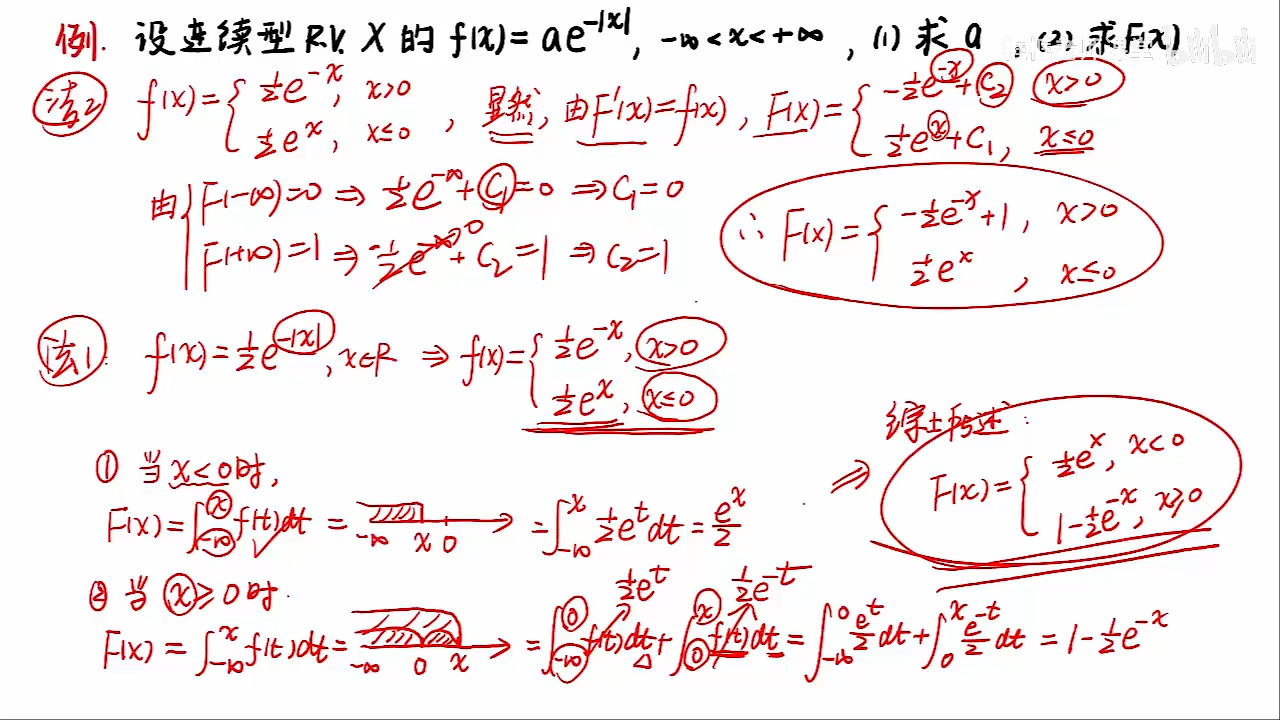 例. 设连续型 R.V. X 的 f(x)=ae^{-|x|}, -∞<x<+∞, (1) 求 a, (2) 求F(x)
法2 f(x)={ ½e^{-x}, x>0 ; ½e^{x}, x≤0 , 显然, 由F'(x)=f(x), F(x)={ -½e^{-x}+C₂, x>0 ; ½e^{x}+C₁, x≤0
由{ F(-∞)=0 ⇒ ½e^{-∞}+C₁=0 ⇒C₁=0
F(+∞)=1 ⇒ -½e^{-∞}→0+C₂=1 ⇒ C₂=1
∴ F(x)={ -½e^{-x}+1, x>0 ; ½e^{x}, x≤0
法1 f(x)=½e^{-|x|}, x∈R ⇒ f(x)={ ½e^{-x}, x>0 ; ½e^{x}, x≤0
① 当x<0时,
F(x)=∫_{-∞}^{x} f(t)dt = -∞ x 0 =∫_{-∞}^{x} ½e^{t}dt=e^{x}/2
② 当x≥0时.
½e^{t} ½e^{-t}
F(x)=∫_{-∞}^{x} f(t)dt= -∞ 0 x =∫_{-∞}^{0} f(t)dt+∫_{0}^{x} f(t)dt=∫_{-∞}^{0} e^{t}/2 dt+∫_{0}^{x} e^{-t}/2 dt=1-½e^{-x}
⇒ 综上所述:
F(x)={ ½e^{x}, x<0 ; 1-½e^{-x}, x≥0